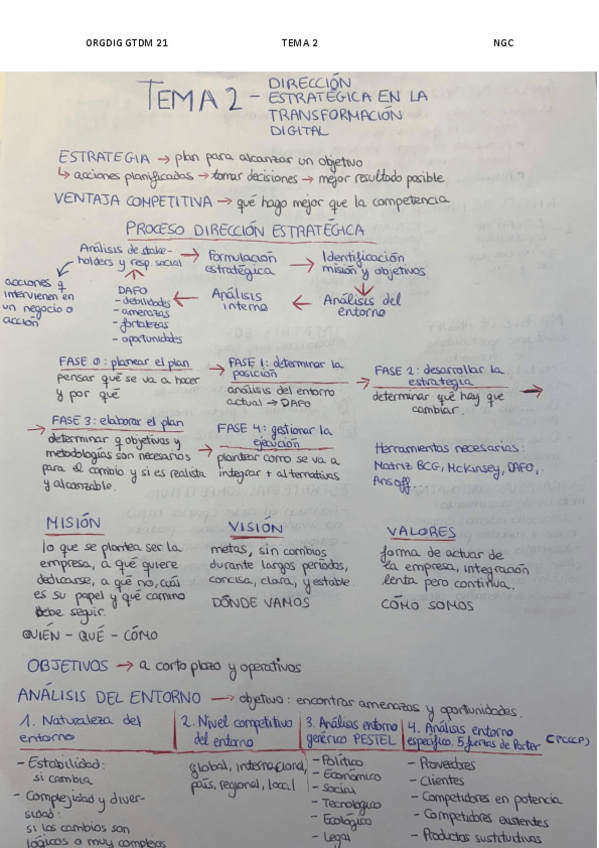 ORGDIG GTDM 21 TEMA 2 NGC
TEMA 2 - DIRECCIÓN
ESTRATÉGICA EN LA
TRANSFORMACIÓN
DIGITAL
ESTRATEGIA → plan para alcanzar un objetivo
↳ acciones planificadas → tomar decisiones → mejor resultado posible
VENTAJA COMPETITIVA → qué hago mejor que la competencia
PROCESO DIRECCIÓN ESTRATÉGICA
Análisis de stake-
holders y resp. social
→ Formulación
estratégica
→ Identificación
misión y objetivos
Análisis del
entorno
← Análisis
interno
← DAFO
- debilidades
- amenazas
- fortalezas
- oportunidades
acciones q
intervienen en
un negocio o
acción
FASE 0: planear el plan
pensar qué se va a hacer
y por qué
→ FASE 1: determinar la
posición
análisis del entorno
actual → DAFO
→ FASE 2: desarrollar la
estrategia
determinar qué hay que
cambiar.
→ FASE 3: elaborar el plan
determinar q objetivos y
metodologías son necesarios
para el cambio y si es realista
y alcanzable.
→ FASE 4: gestionar la
ejecución
plantear como se va a
integrar + alternativas
Herramientas necesarias:
Matriz BCG, McKinsey, DAFO,
Ansoff.
MISIÓN
lo que se plantea ser la
empresa, a qué quiere
dedicarse, a qué no, cuál
es su papel y qué camino
debe seguir.
QUIÉN - QUÉ - CÓMO
VISIÓN
metas, sin cambios
durante largos períodos,
concisa, clara, y estable.
DÓNDE VAMOS
VALORES
forma de actuar de
la empresa, integración
lenta pero continua.
CÓMO SOMOS
OBJETIVOS → a corto plazo y operativos
ANÁLISIS DEL ENTORNO → objetivo: encontrar amenazas y oportunidades.
1. Naturaleza del
entorno
- Estabilidad:
si cambia
- Complejidad y diver-
sidad:
si los cambios son
lógicos o muy complejos
2. Nivel competitivo
del entorno
global, internacional,
país, regional, local
3. Análisis entorno
genérico PESTEL
- Político
- Económico
- Social
- Tecnológico
- Ecológico
- Legal
4. Análisis entorno
específico. 5 fuerzas de Porter (PCCCP)
- Proveedores
- Clientes
- Competidores en potencia
- Competidores existentes
- Productos sustitutivos